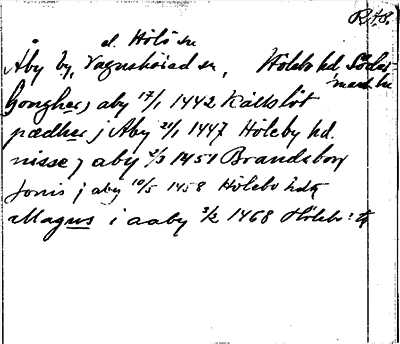 el. Hölö sn
Åby by, Vagnhärad sn, Hölebo hd. Söder-
manl. län
j aby 17/1 1442
pædher j Åby 21/1 1447 Höleby hd.
nisse j aby 2/3 1451 Brandsborg
Jonis j aby 10/5 1458 Hölebo hdg
Magnus i aaby 3/2 1468 Hölebo